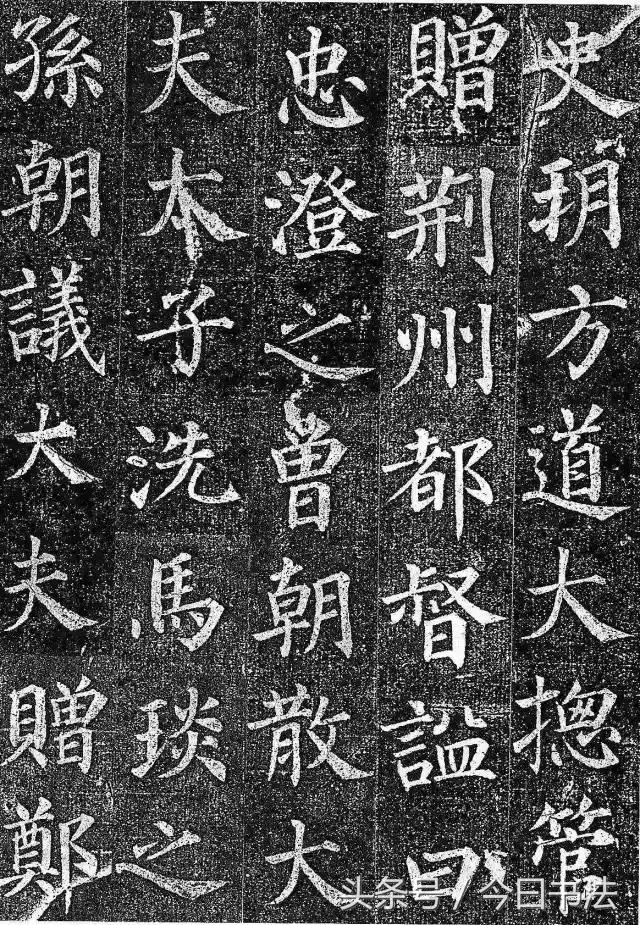 史玥方道大摠管
贈荆州都督謚曰
忠澄之曽朝散大
夫太子洗馬琰之
孫朝議大夫贈鄭
头条号 / 今日书法